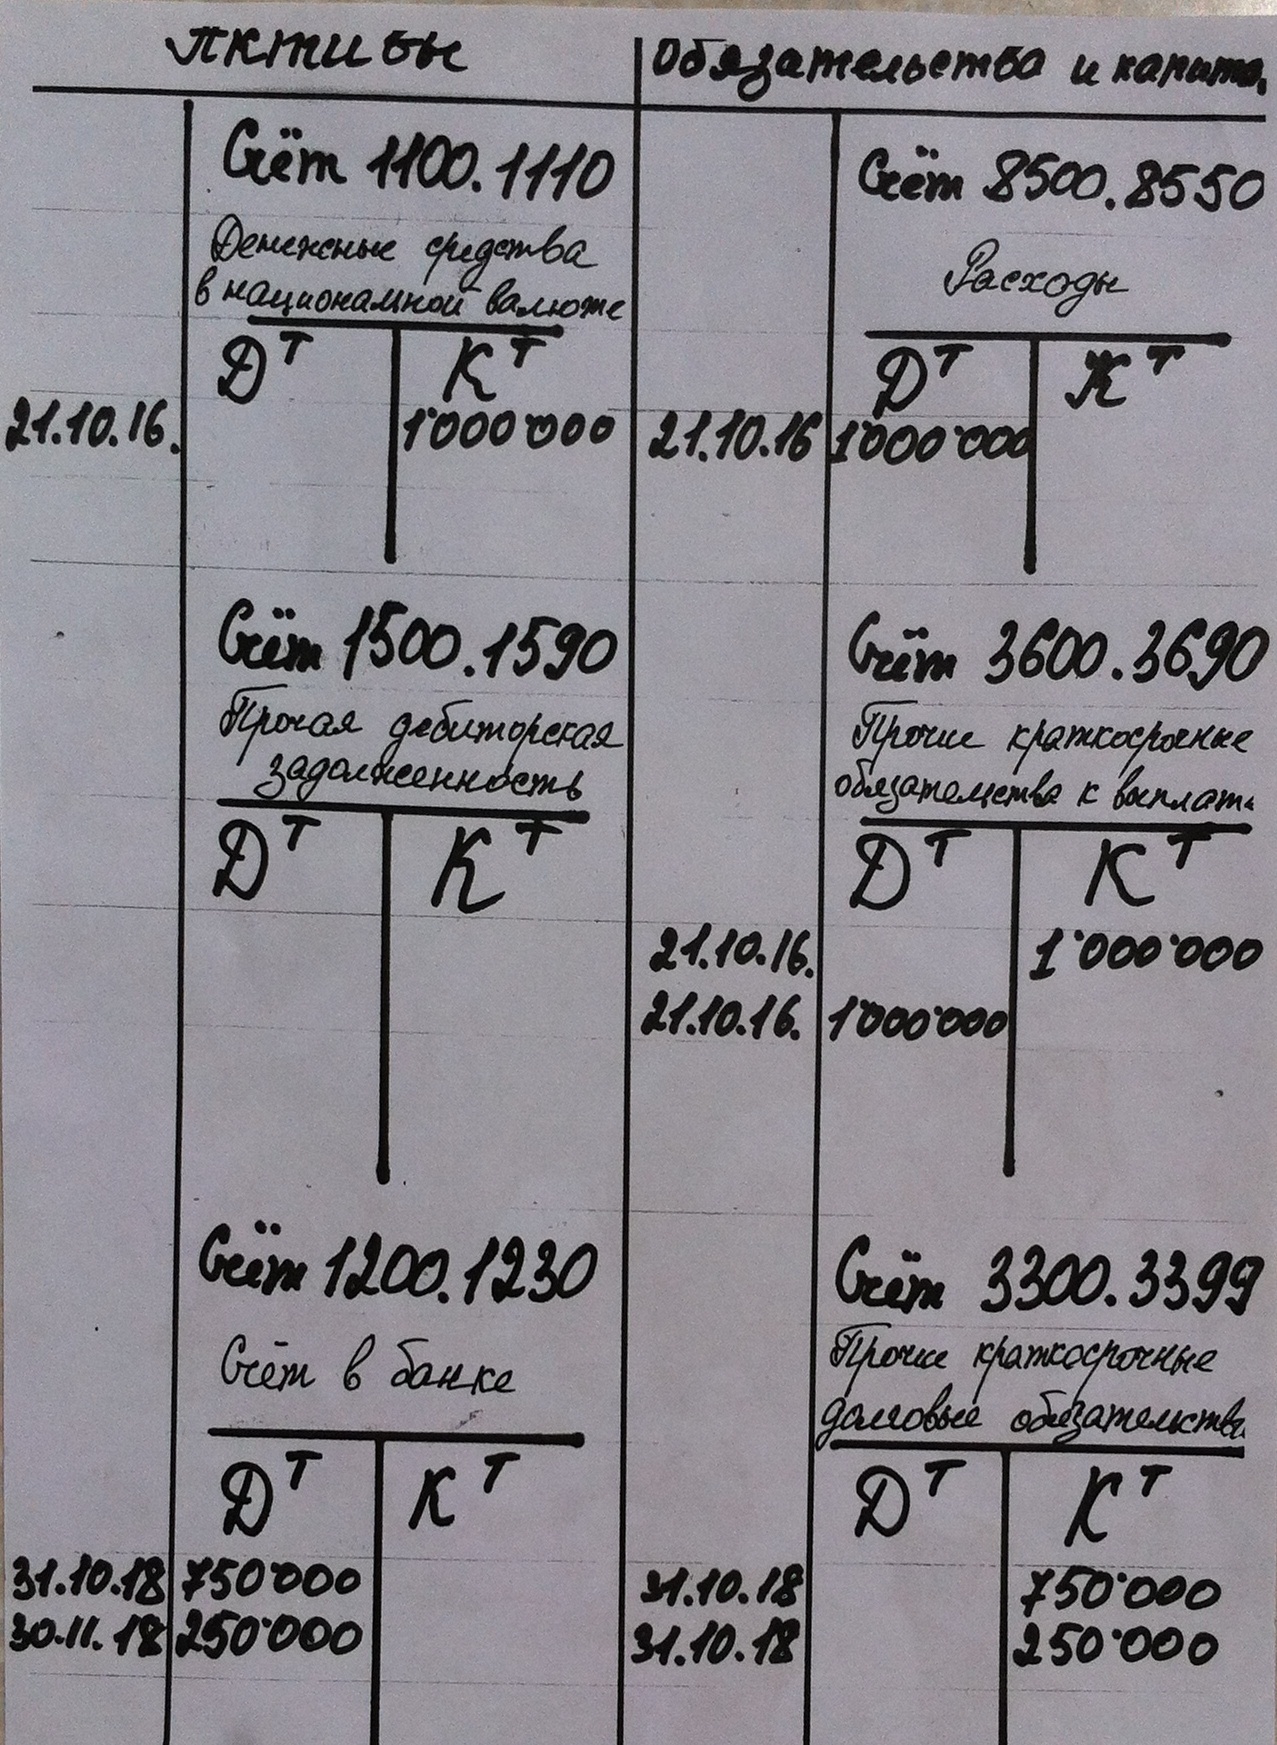 Активы
Обязательства и капита.
Счёт 1100.1110
Денежные средства
в национальной валюте
Дт Кт
21.10.16. 1'000'000
Счёт 8500.8550
Расходы
Дт Кт
21.10.16 1'000'000
Счёт 1500.1590
Прочая дебиторская
задолженность
Дт Кт
Счёт 3600.3690
Прочие краткосрочные
обязательства к выплат
Дт Кт
21.10.16. 1'000'000
21.10.16. 1'000'000
Счёт 1200.1230
Счёт в банке
Дт Кт
31.10.18 750'000
30.11.18 250'000
Счёт 3300.3399
Прочие краткосрочные
долговые обязательства
Дт Кт
31.10.18 750'000
31.10.18 250'000